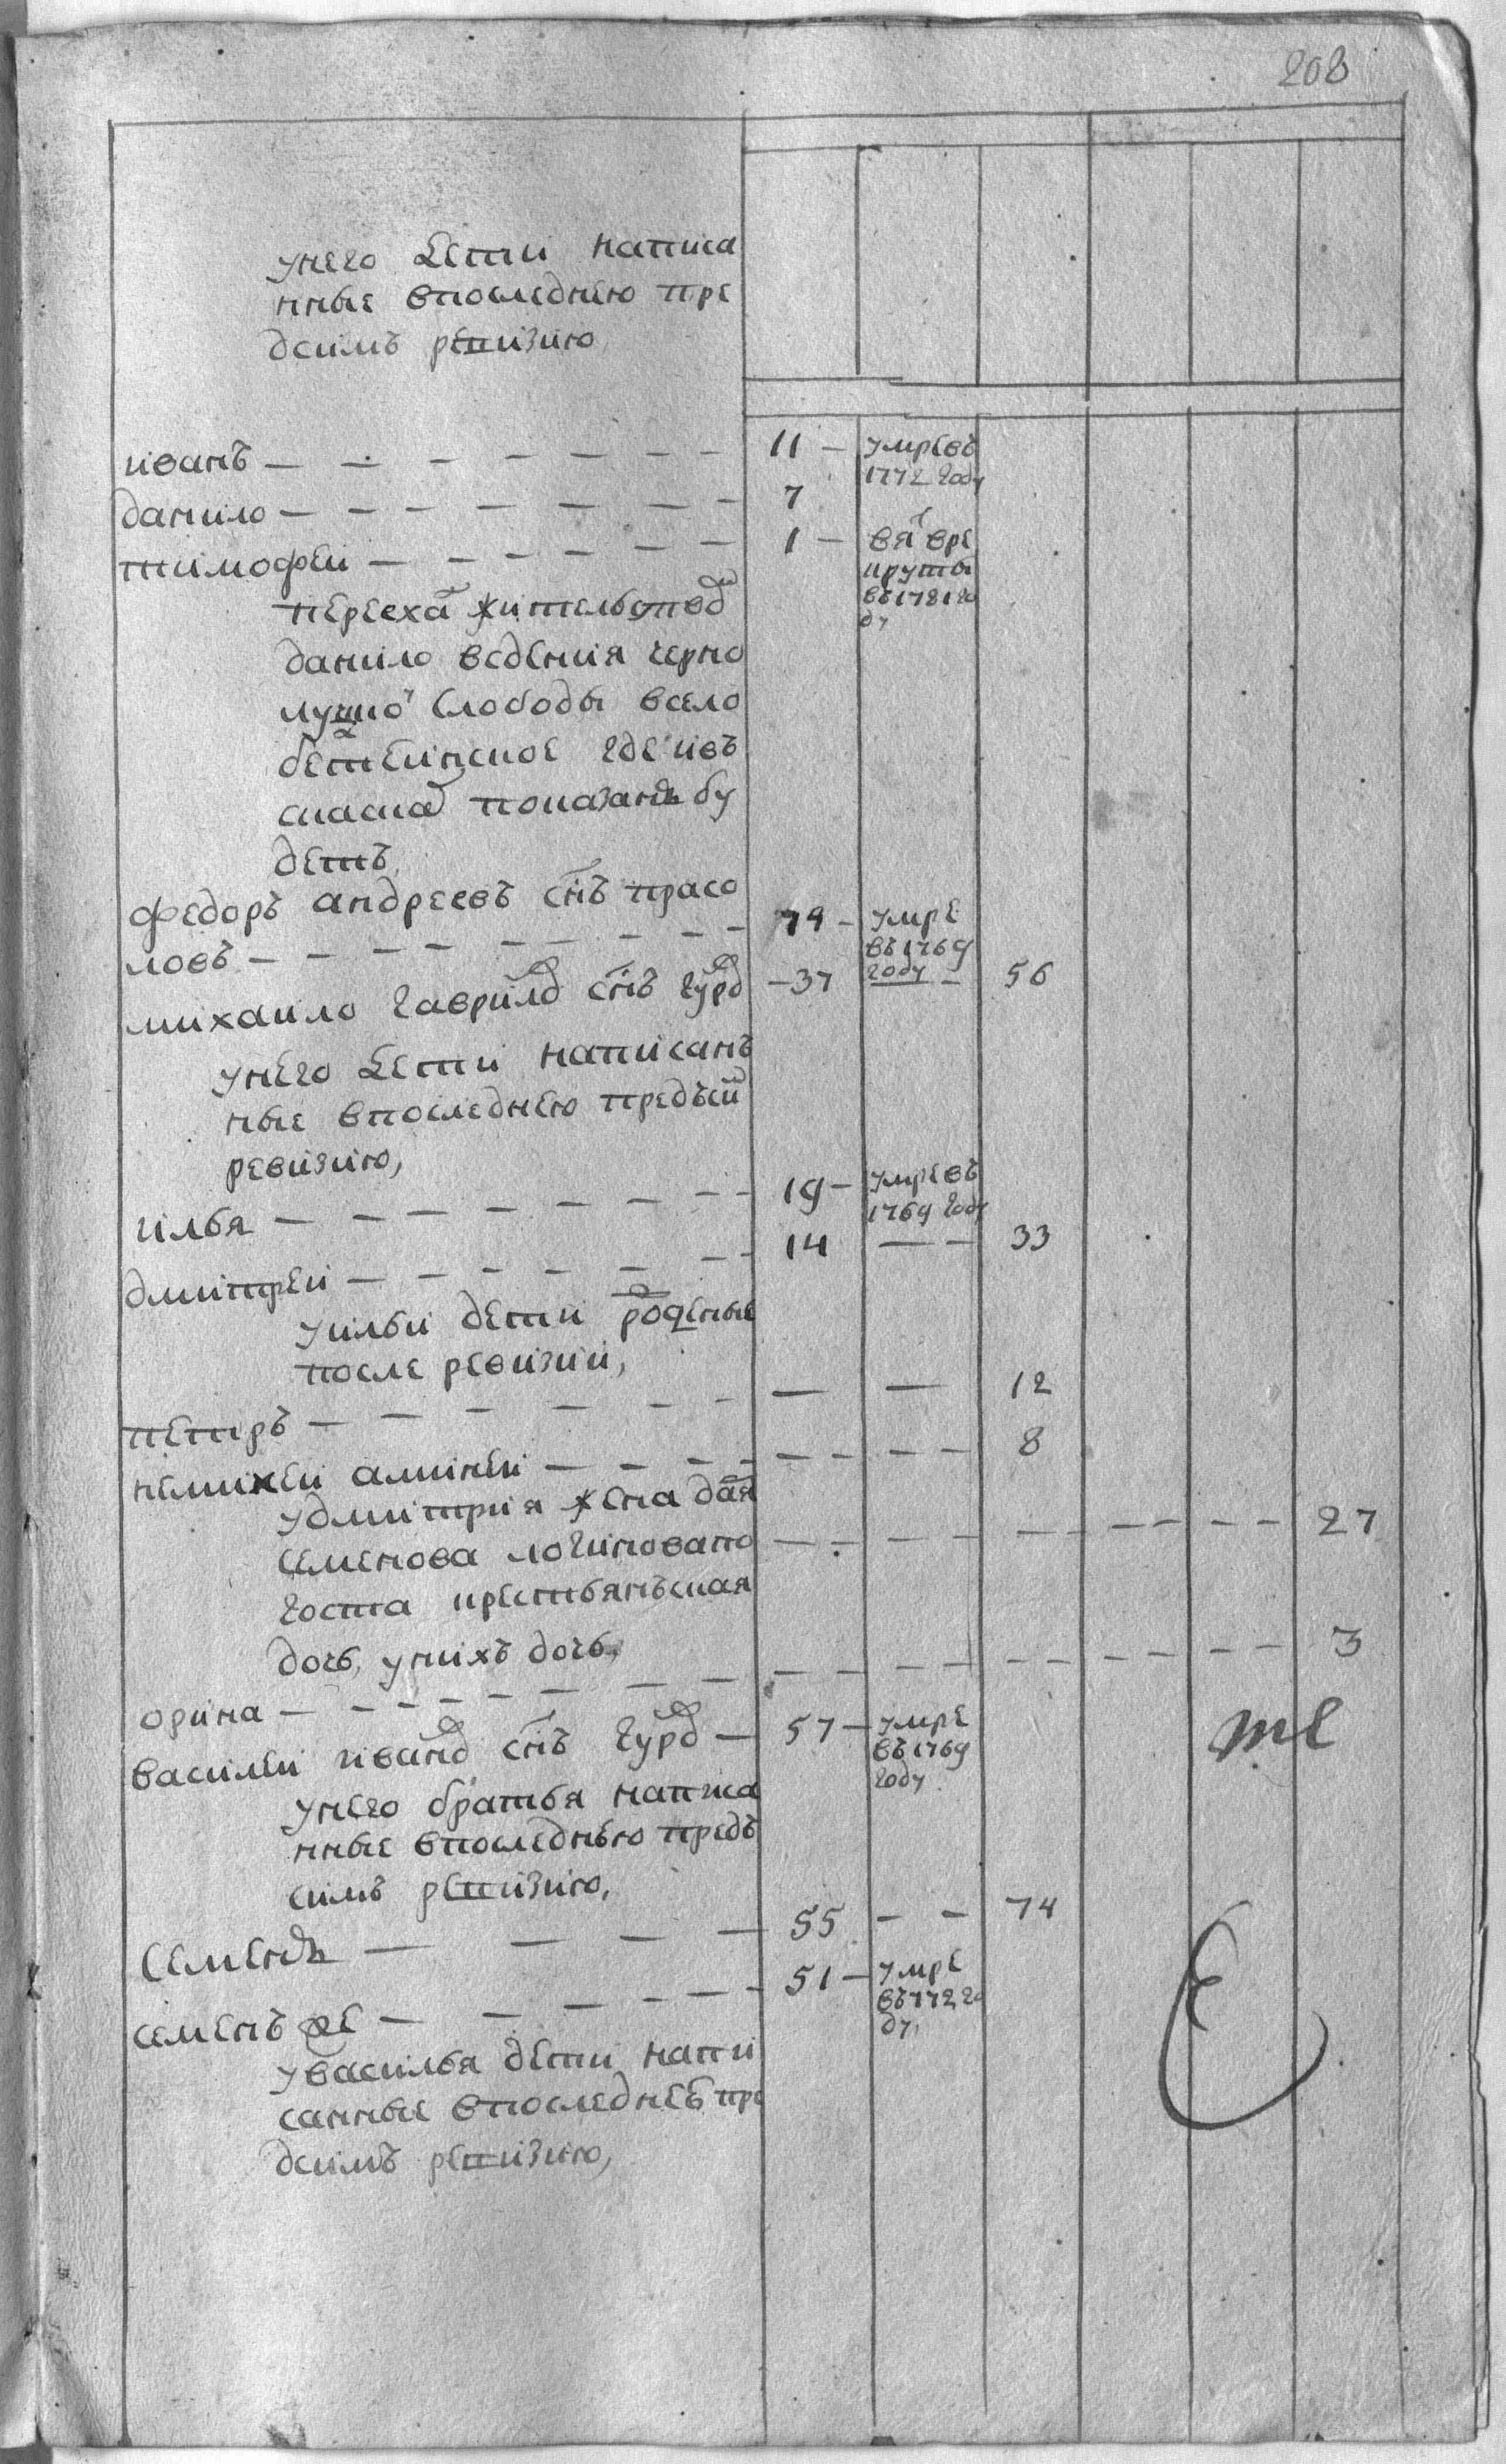 208
унего дети написа
нные впоследнею пре
дсимъ ревизию
иванъ — 11 — умре въ
1772 году
данило — 7
тимофей — 1 — взя вре
круты
въ 1781 го
ду
перееха жительство
данило ведения черно
луцко слободы всело
бетеинское где ивъ
сказка показанъ бу
детъ,
федоръ андреевъ снъ прасо
ловъ — 79 — умре
въ 1769
году
михаило гаврило снъ гуро — 37 — 56
унего дети написанъ
ные впоследнею предъсим
ревизию,
илья — 19 — умре въ
1769 году
дмитрей — 14 — — 33
уильи дети рожденые
после ревизии,
петръ — — — 12
алиней — — — 8
удмитрия жена дая
семенова логинова по
госта крестьянъская — 27
дочь, унихъ дочь,
орина — 3
василеи ивано снъ гуро — 57 — умре
въ 1769
году
те
унего братья написа
нные впоследнею предъ
симъ ревизию,
семенъ — 55 — — 74
семенъ же — 51 — умре
въ 1772 го
ду.
увасилья дети напи
санные впоследнею пре
дсимъ ревизию,